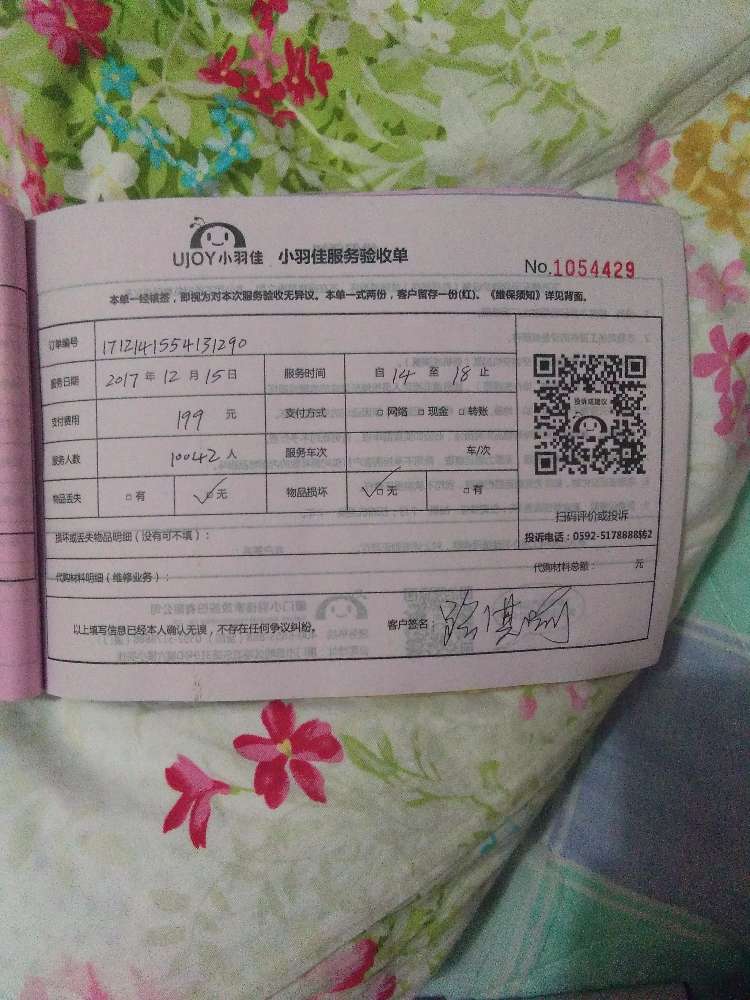 UJOY小羽佳 小羽佳服务验收单
No.1054429
本单一经填签，即视为对本次服务验收无异议。本单一式两份，客户留存一份(红)。《维保须知》详见背面。
订单编号 1712141554131290
服务日期 2017年12月15日 服务时间 自14至18止
支付费用 199元 支付方式 □网络 □现金 □转账
服务人数 10042人 服务车次 车/次
物品丢失 □有 ☑无 物品损坏 ☑无 □有
投诉或建议
扫码评价或投诉
投诉电话：0592-5178888转2
损坏或丢失物品明细（没有可不填）：
代购材料明细（维修业务）： 代购材料总额： 元
以上填写信息已经本人确认无误，不存在任何争议纠纷。 客户签名：